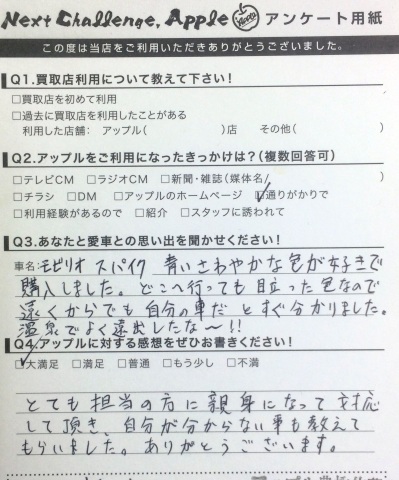 Next Challenge, Apple アンケート用紙
この度は当店をご利用いただきありがとうございました。
Q1.買取店利用について教えて下さい!
□買取店を初めて利用
□過去に買取店を利用したことがある
利用した店舗: アップル( )店 その他( )
Q2.アップルをご利用になったきっかけは?(複数回答可)
□テレビCM □ラジオCM □新聞・雑誌(媒体名/ )
□チラシ □DM □アップルのホームページ ☑通りがかりで
□利用経験があるので □紹介 □スタッフに誘われて
Q3.あなたと愛車との思い出を聞かせください!
車名:モビリオ スパイク 青いさわやかな色が好きで
購入しました。どこへ行っても目立った色なので
遠くからでも自分の車だとすぐ分かりました。
温泉でよく遠出したな〜!!
Q4.アップルに対する感想をぜひお書きください!
☑大満足 □満足 □普通 □もう少し □不満
とても担当の方に親身になって対応
して頂き、自分が分からない事も教えて
もらいました。ありがとうございます。